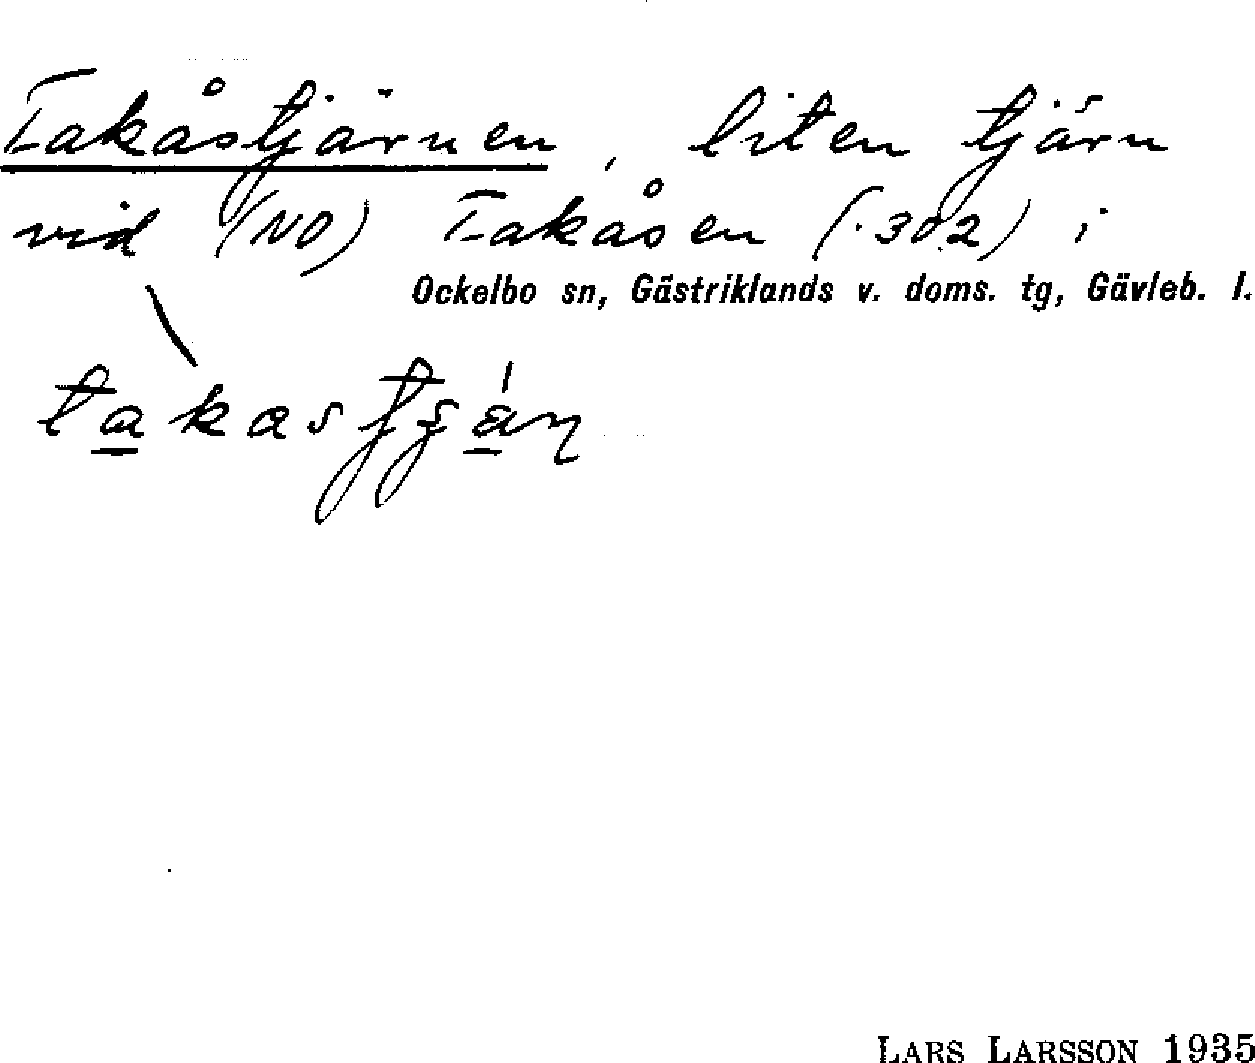 Takåstjärnen, liten tjärn
vid (NO) Takåsen (.302) i
Ockelbo sn, Gästriklands v. doms. tg, Gävleb. l.
LARS LARSSON 1935